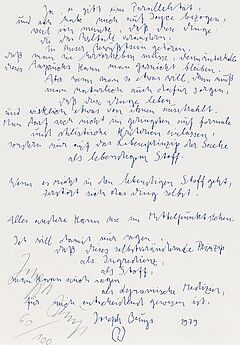 Ja, es gibt eine Parallelität,
und das habe ich auf Joyce bezogen,
weil ich meinte, daß diese Dinge
in unser Bewußtsein gehören.
daß man sie
Anspruchs kann man gesund bleiben.
Aber wenn man so etwas will, dann muß
man natürlich auch dafür sorgen,
daß die Dinge leben
und wirklich etwas von ihnen ausstrahlt.
Man darf sich nicht im geringsten auf formale
und stilistische Kriterien einlassen,
sondern nur auf das Lebensprinzip der Sache
als lebendigem Stoff.
Wenn es nicht in den lebendigen Stoff geht,
zerstört sich das Ding selbst.
Alles andere kann nie im Mittelpunkt stehen.
Ich will damit nur sagen,
daß dieses selbstverständliche Prinzip
als Ingredienz,
als Stoff,
man kann auch sagen
als dynamische Medizin,
für mich entscheidend gewesen ist.
Joseph Beuys 1979
60/100
(2)